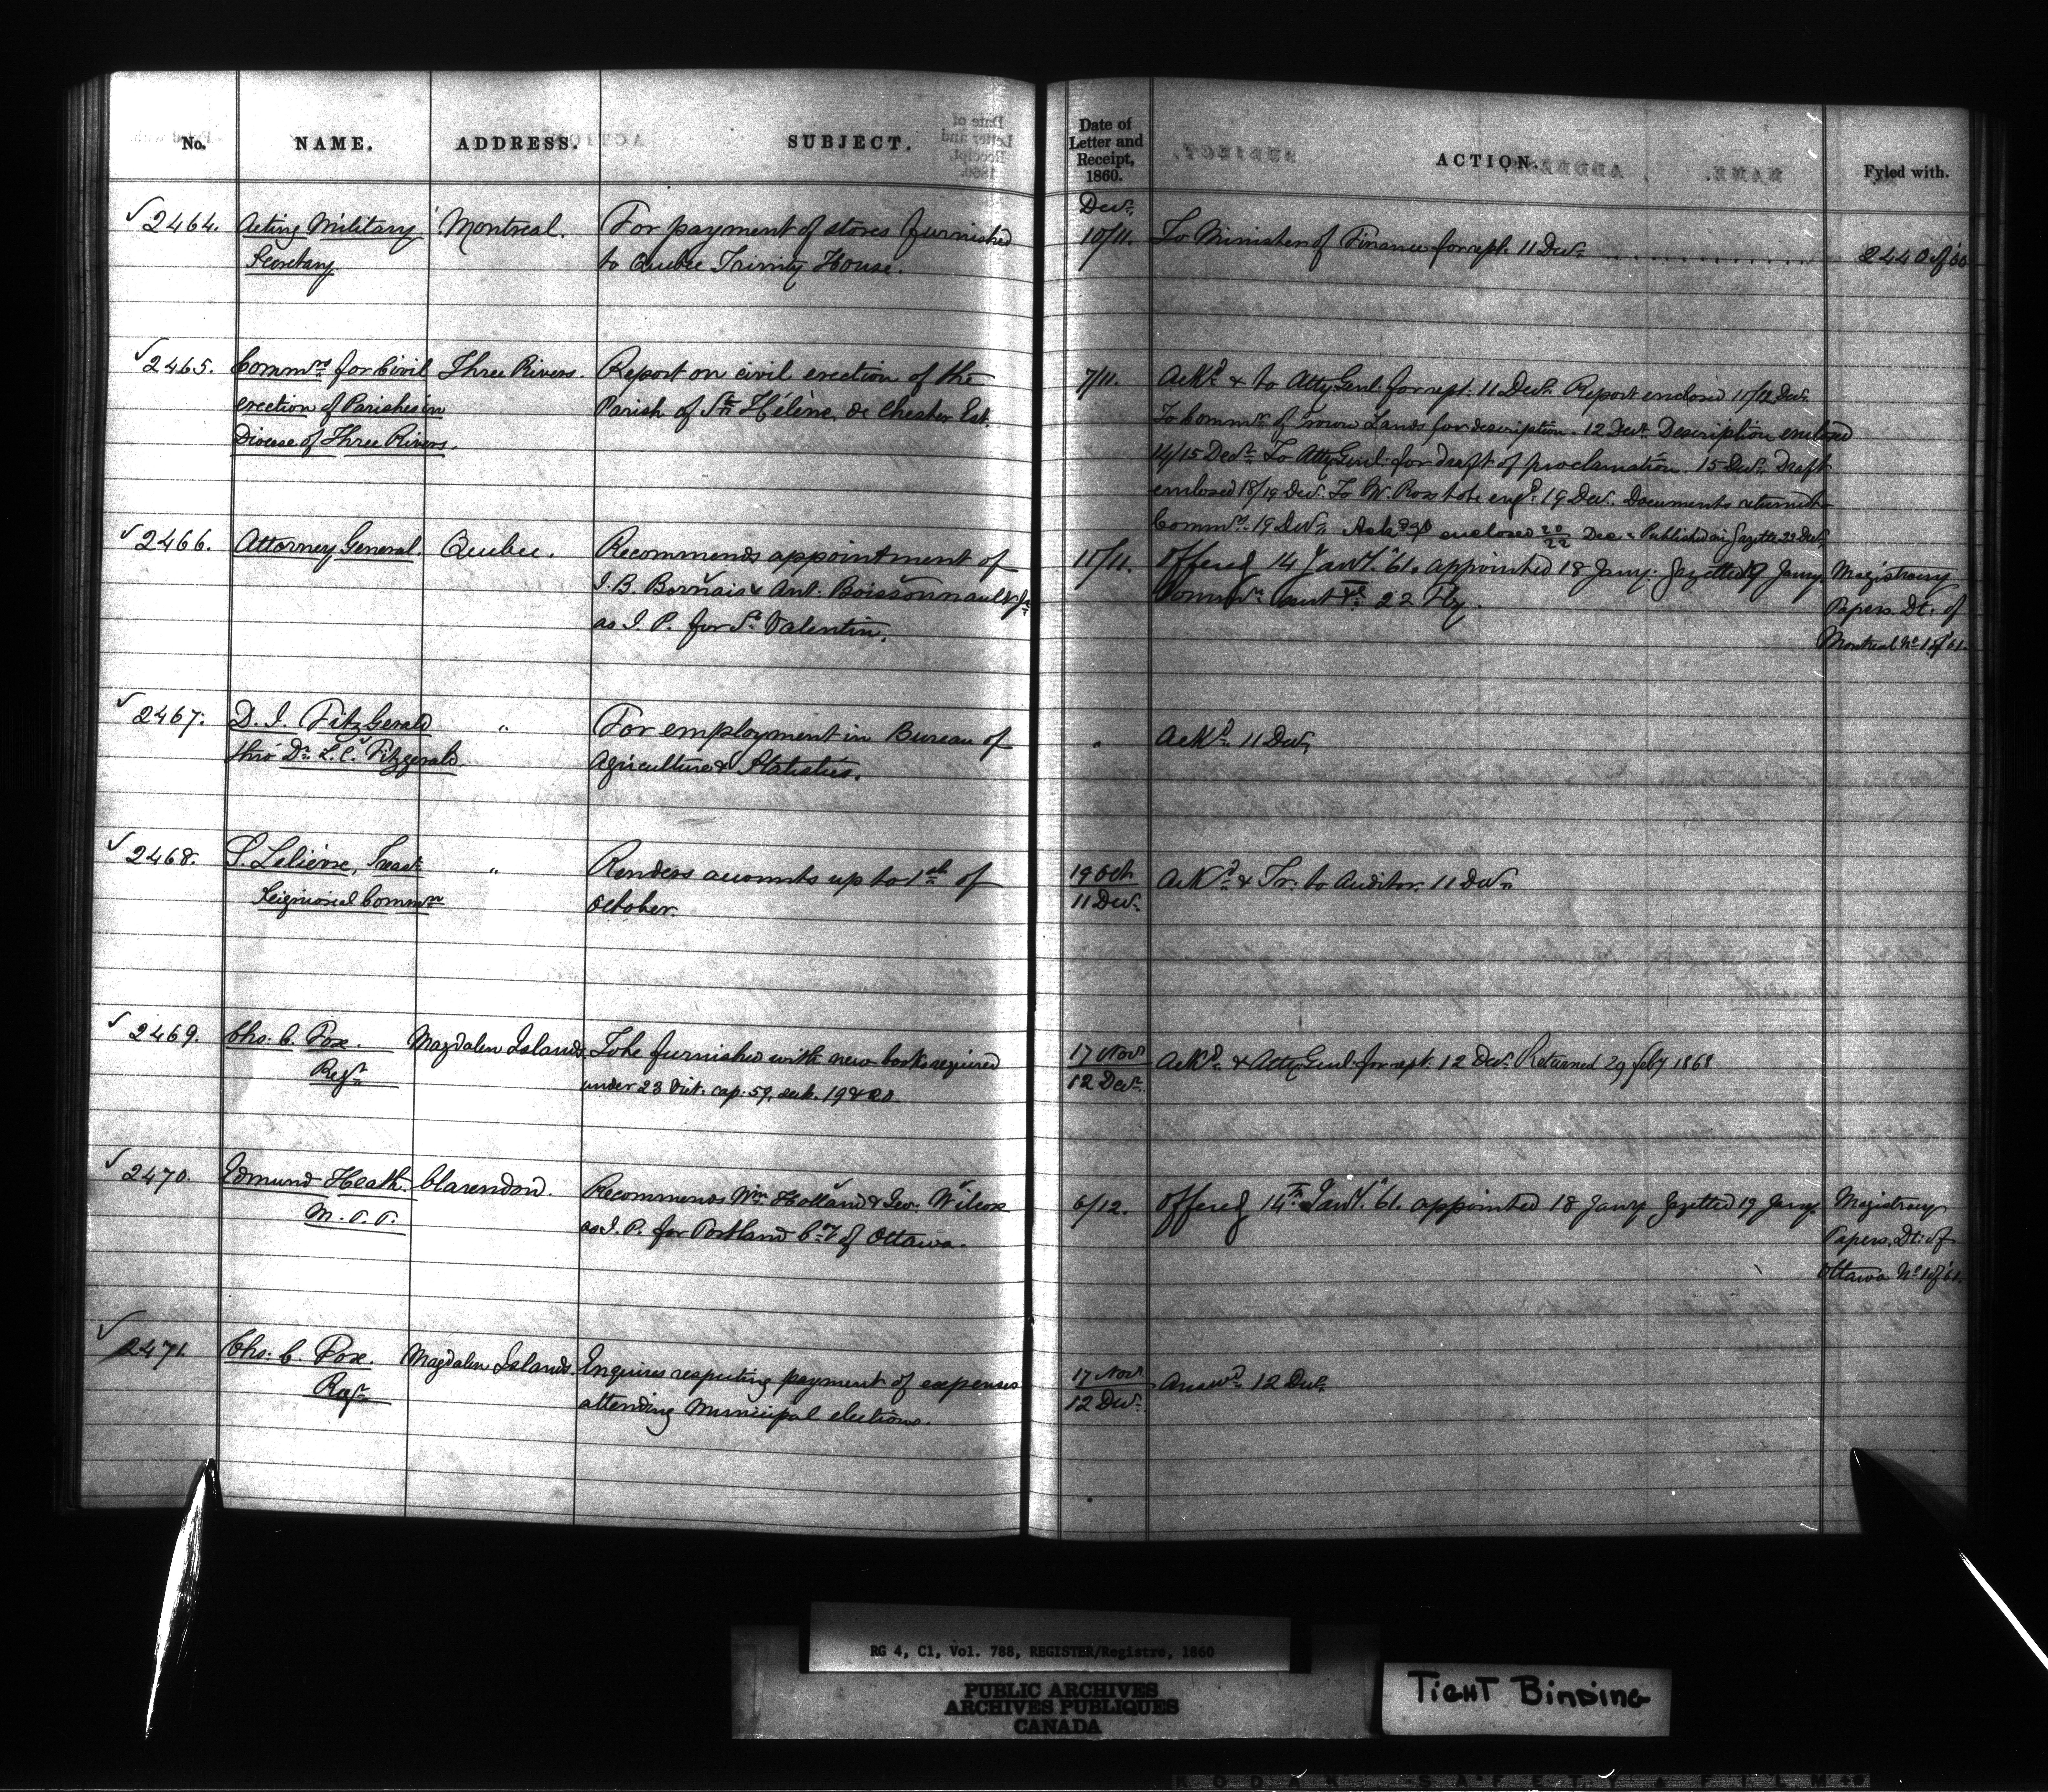 No. NAME. ADDRESS. SUBJECT. Date of Letter and Receipt, 1860. ACTION. Fyled with.
Decr.
2464. Acting Military Montreal. For payment of stores furnished 10/11. To Minister of Finance for rept. 11 Decr. 2440 of '60
Secretary. to Quebec Trinity House.
2465. Commrs for Civil Three Rivers. Report on civil erection of the 7/11. Ackd. & to Atty Genl. for rept. 11 Decr. Report enclosed 11/12 Decr.
erection of Parishes in Parish of Ste. Hélène de Chester Est. To Commr. of Crown Lands for description. 12 Decr. Description enclosed
Diocese of Three Rivers. 14/15 Decr. To Atty Genl. for draft of proclamation. 15 Decr. Draft
enclosed 18/19 Decr. To W. Ross to be engd. 19 Decr. Documents returned to
Commrs. 19 Decr. enclosed 20/22 Dec. Published in Gazette 22 Decr.
2466. Attorney General. Quebec. Recommends appointment of 11/11. Offered 14 Jany. '61. appointed 18 Jany. gazetted 19 Jany. Magistracy
J. B. Bornais & Ant. Boissonnault Jr. Commn. sent 22 Fby. Papers. Dt. of
as J. P. for St. Valentin. Montreal No. 1 of '61.
2467. D. J. FitzGerald " For employment in Bureau of " Ackd. 11 Decr.
thro' Dr. L. C. Fitzgerald. Agriculture & Statistics.
2468. S. Lelièvre, Secrt. " Renders accounts up to 1st. of 19 Oct. Ackd. & Tr. to Auditor. 11 Decr.
Seigniorial Commn. October. 11 Decr.
2469. Chs. C. Fox. Magdalen Islands. To be furnished with new books required 17 Novr. Ackd. & Atty Genl. for rept. 12 Decr. Returned 29 feby 1868
Regr. under 23 Vict. cap. 59, sect. 19 & 20. 12 Decr.
2470. Edmund Heath. Clarendon. Recommends Wm. Holland & Geo. Wilcox 6/12. Offered 14th. Jany. '61. appointed 18 Jany gazetted 19 Jany. Magistracy
M. P. P. as J. P. for Portland Cty of Ottawa. Papers. Dt. of
Ottawa No. 1 of '61.
2471. Chs. C. Fox. Magdalen Islands. Enquires respecting payment of expenses 17 Novr. Answd. 12 Decr.
Regr. attending Municipal elections. 12 Decr.
RG 4, C1, Vol. 788, REGISTER/Registre, 1860
PUBLIC ARCHIVES
ARCHIVES PUBLIQUES
CANADA
TIGHT BINDING
KODAK SAFETY FILM